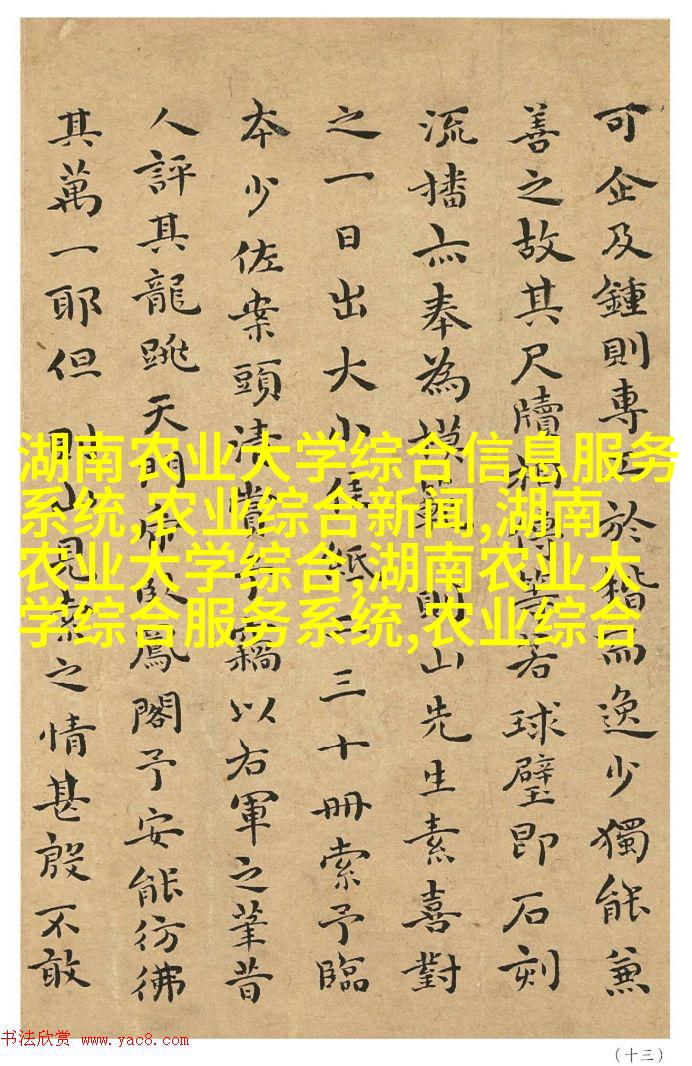 可企及鍾則專工於楷而逸少獨能兼
善之故其尺牘傳等若球璧即石刻
流播亦奉為模範明山先生素喜對
之一日出大小紙二三十冊索予臨
本少佐案頭清賞予竊以右軍之筆昔
人評其龍跳天門虎臥鳳閣予安能彷彿
其萬一耶但明山見索之情甚殷不敢
湖南农业大学综合信息服务
系统,农业综合新闻,湖南
农业大学综合,湖南农业大
学综合服务系统,农业综合
书法欣赏 www.yac8.com
（十三）